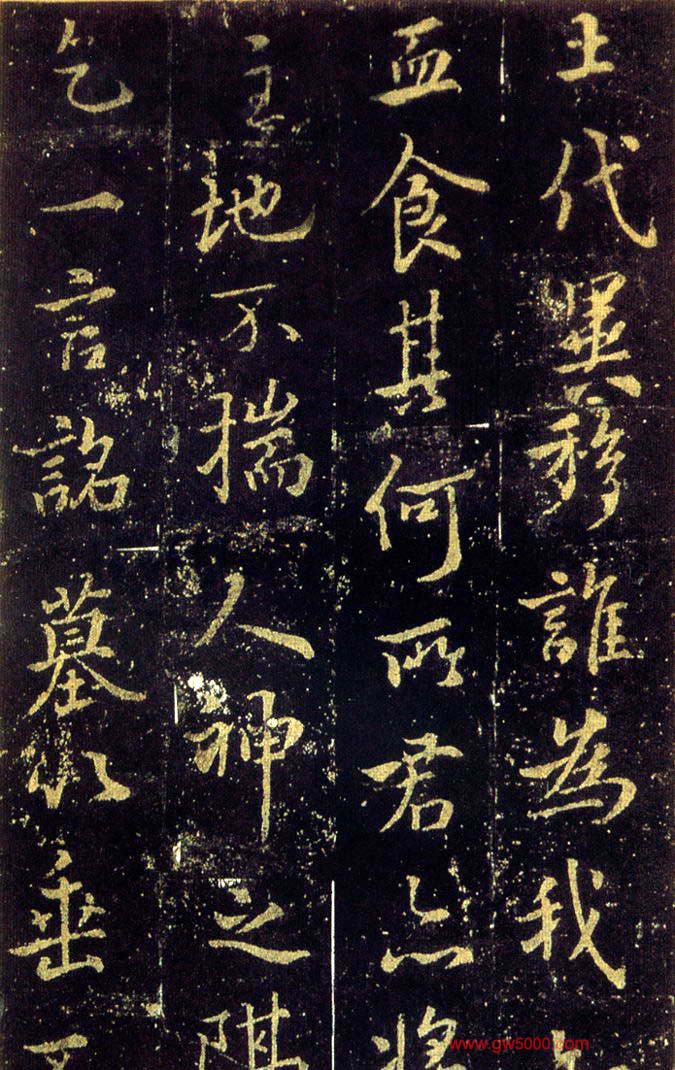 土代異移誰為我
血食其何所君亦將
主地不揣人神之
乞一言銘墓以垂
www.gw5000.com